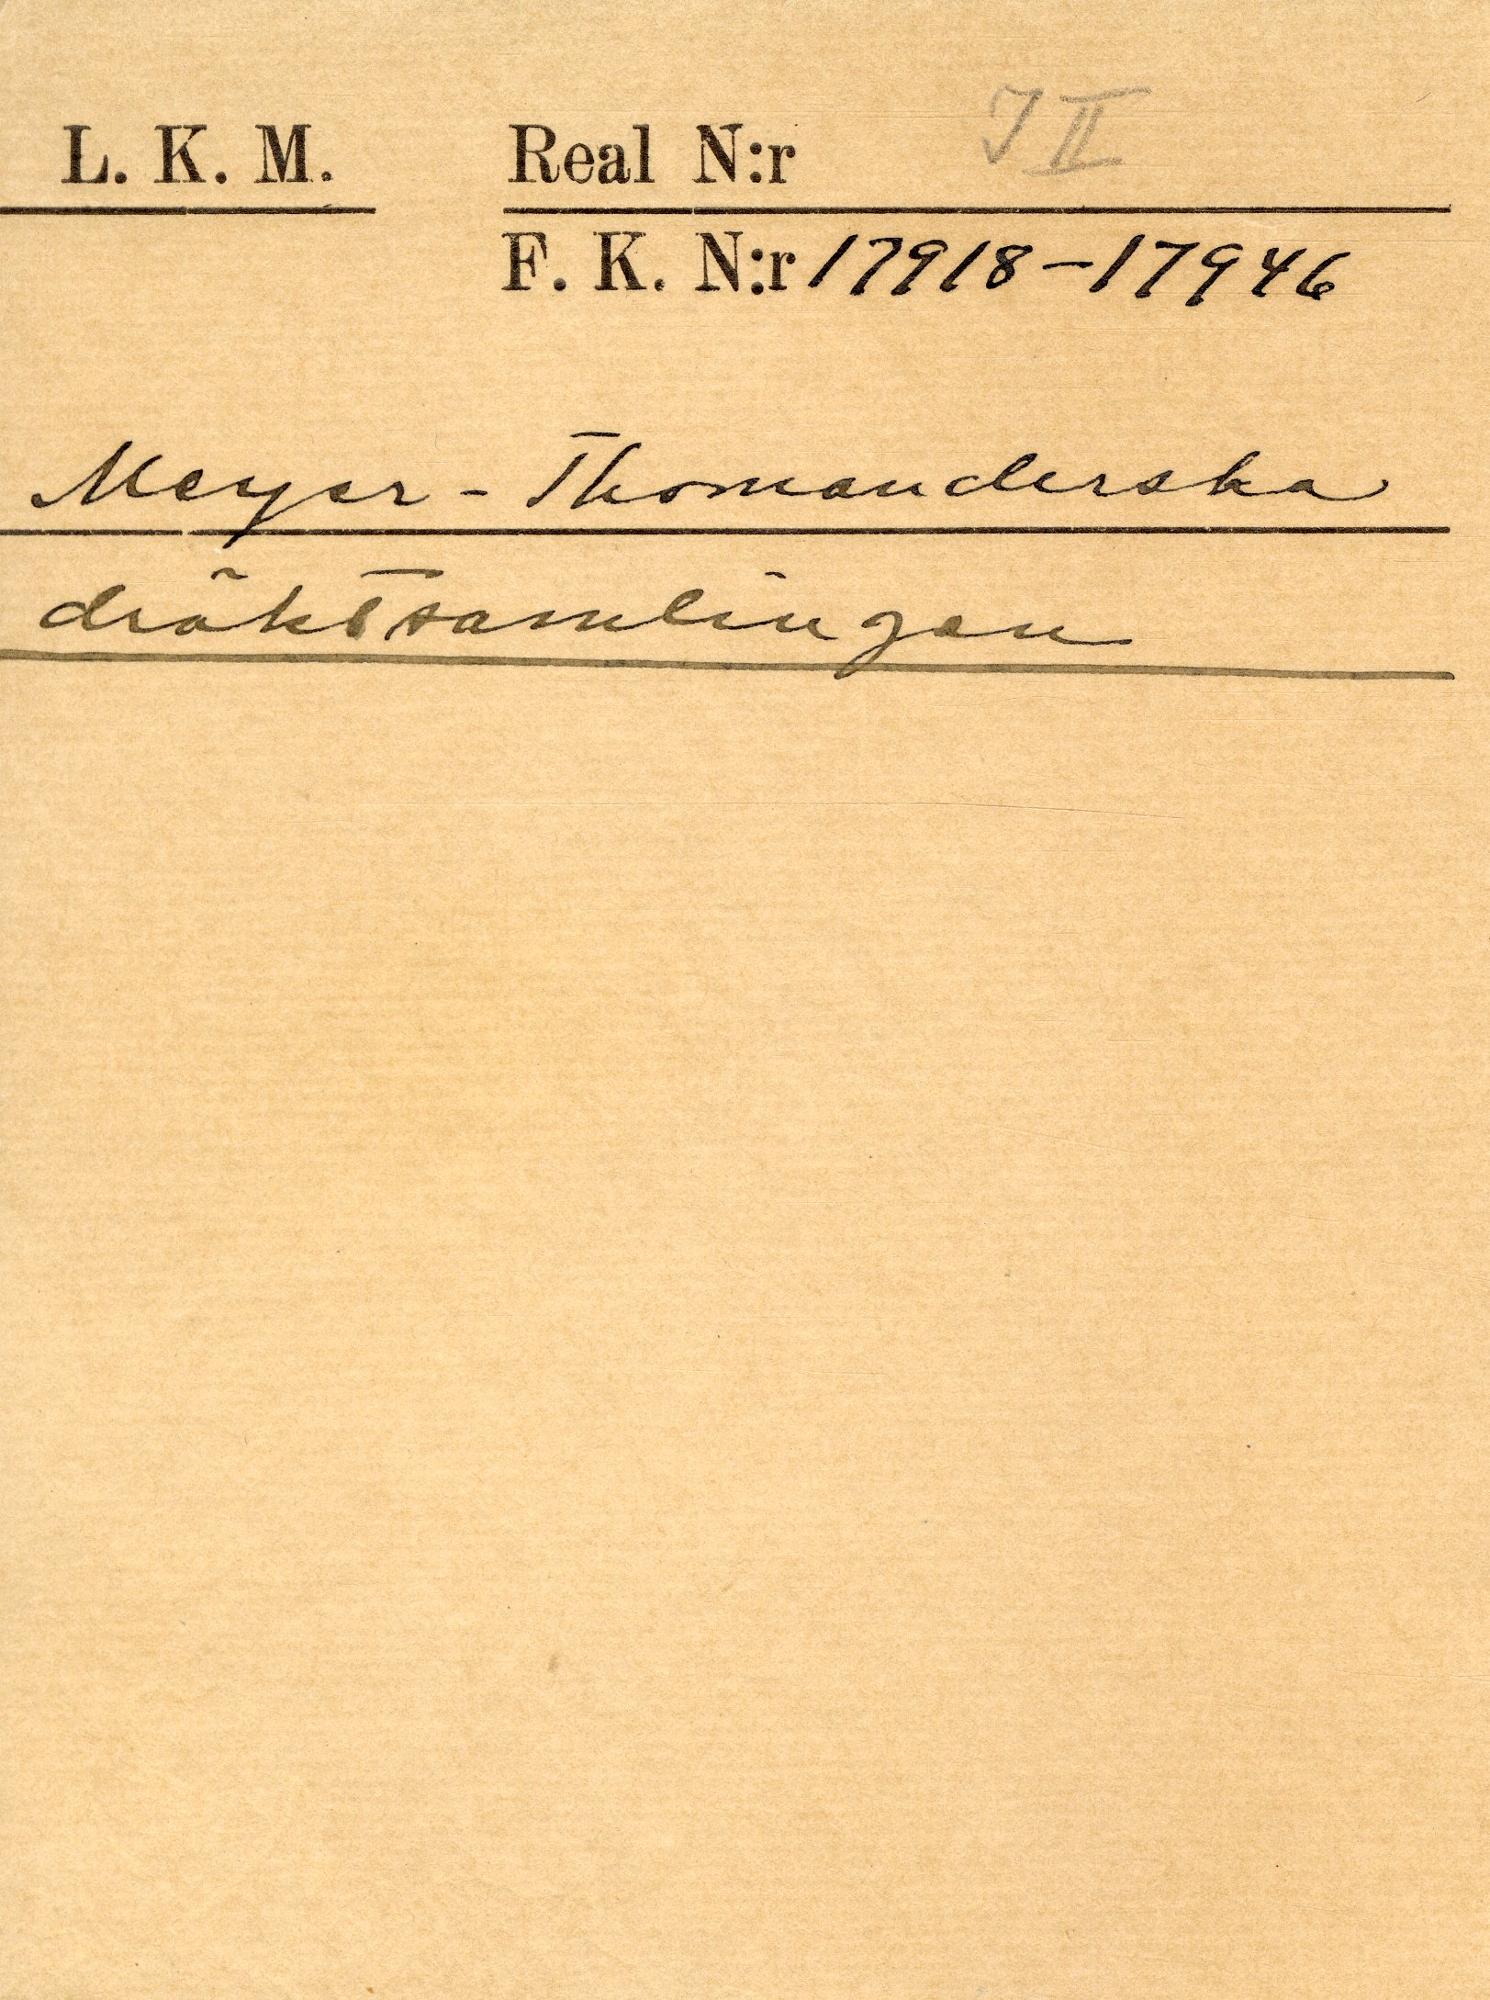 L. K. M. Real N:r J II
F. K. N:r 17918-17946
Meyer-Thomanderska
dräktsamlingen